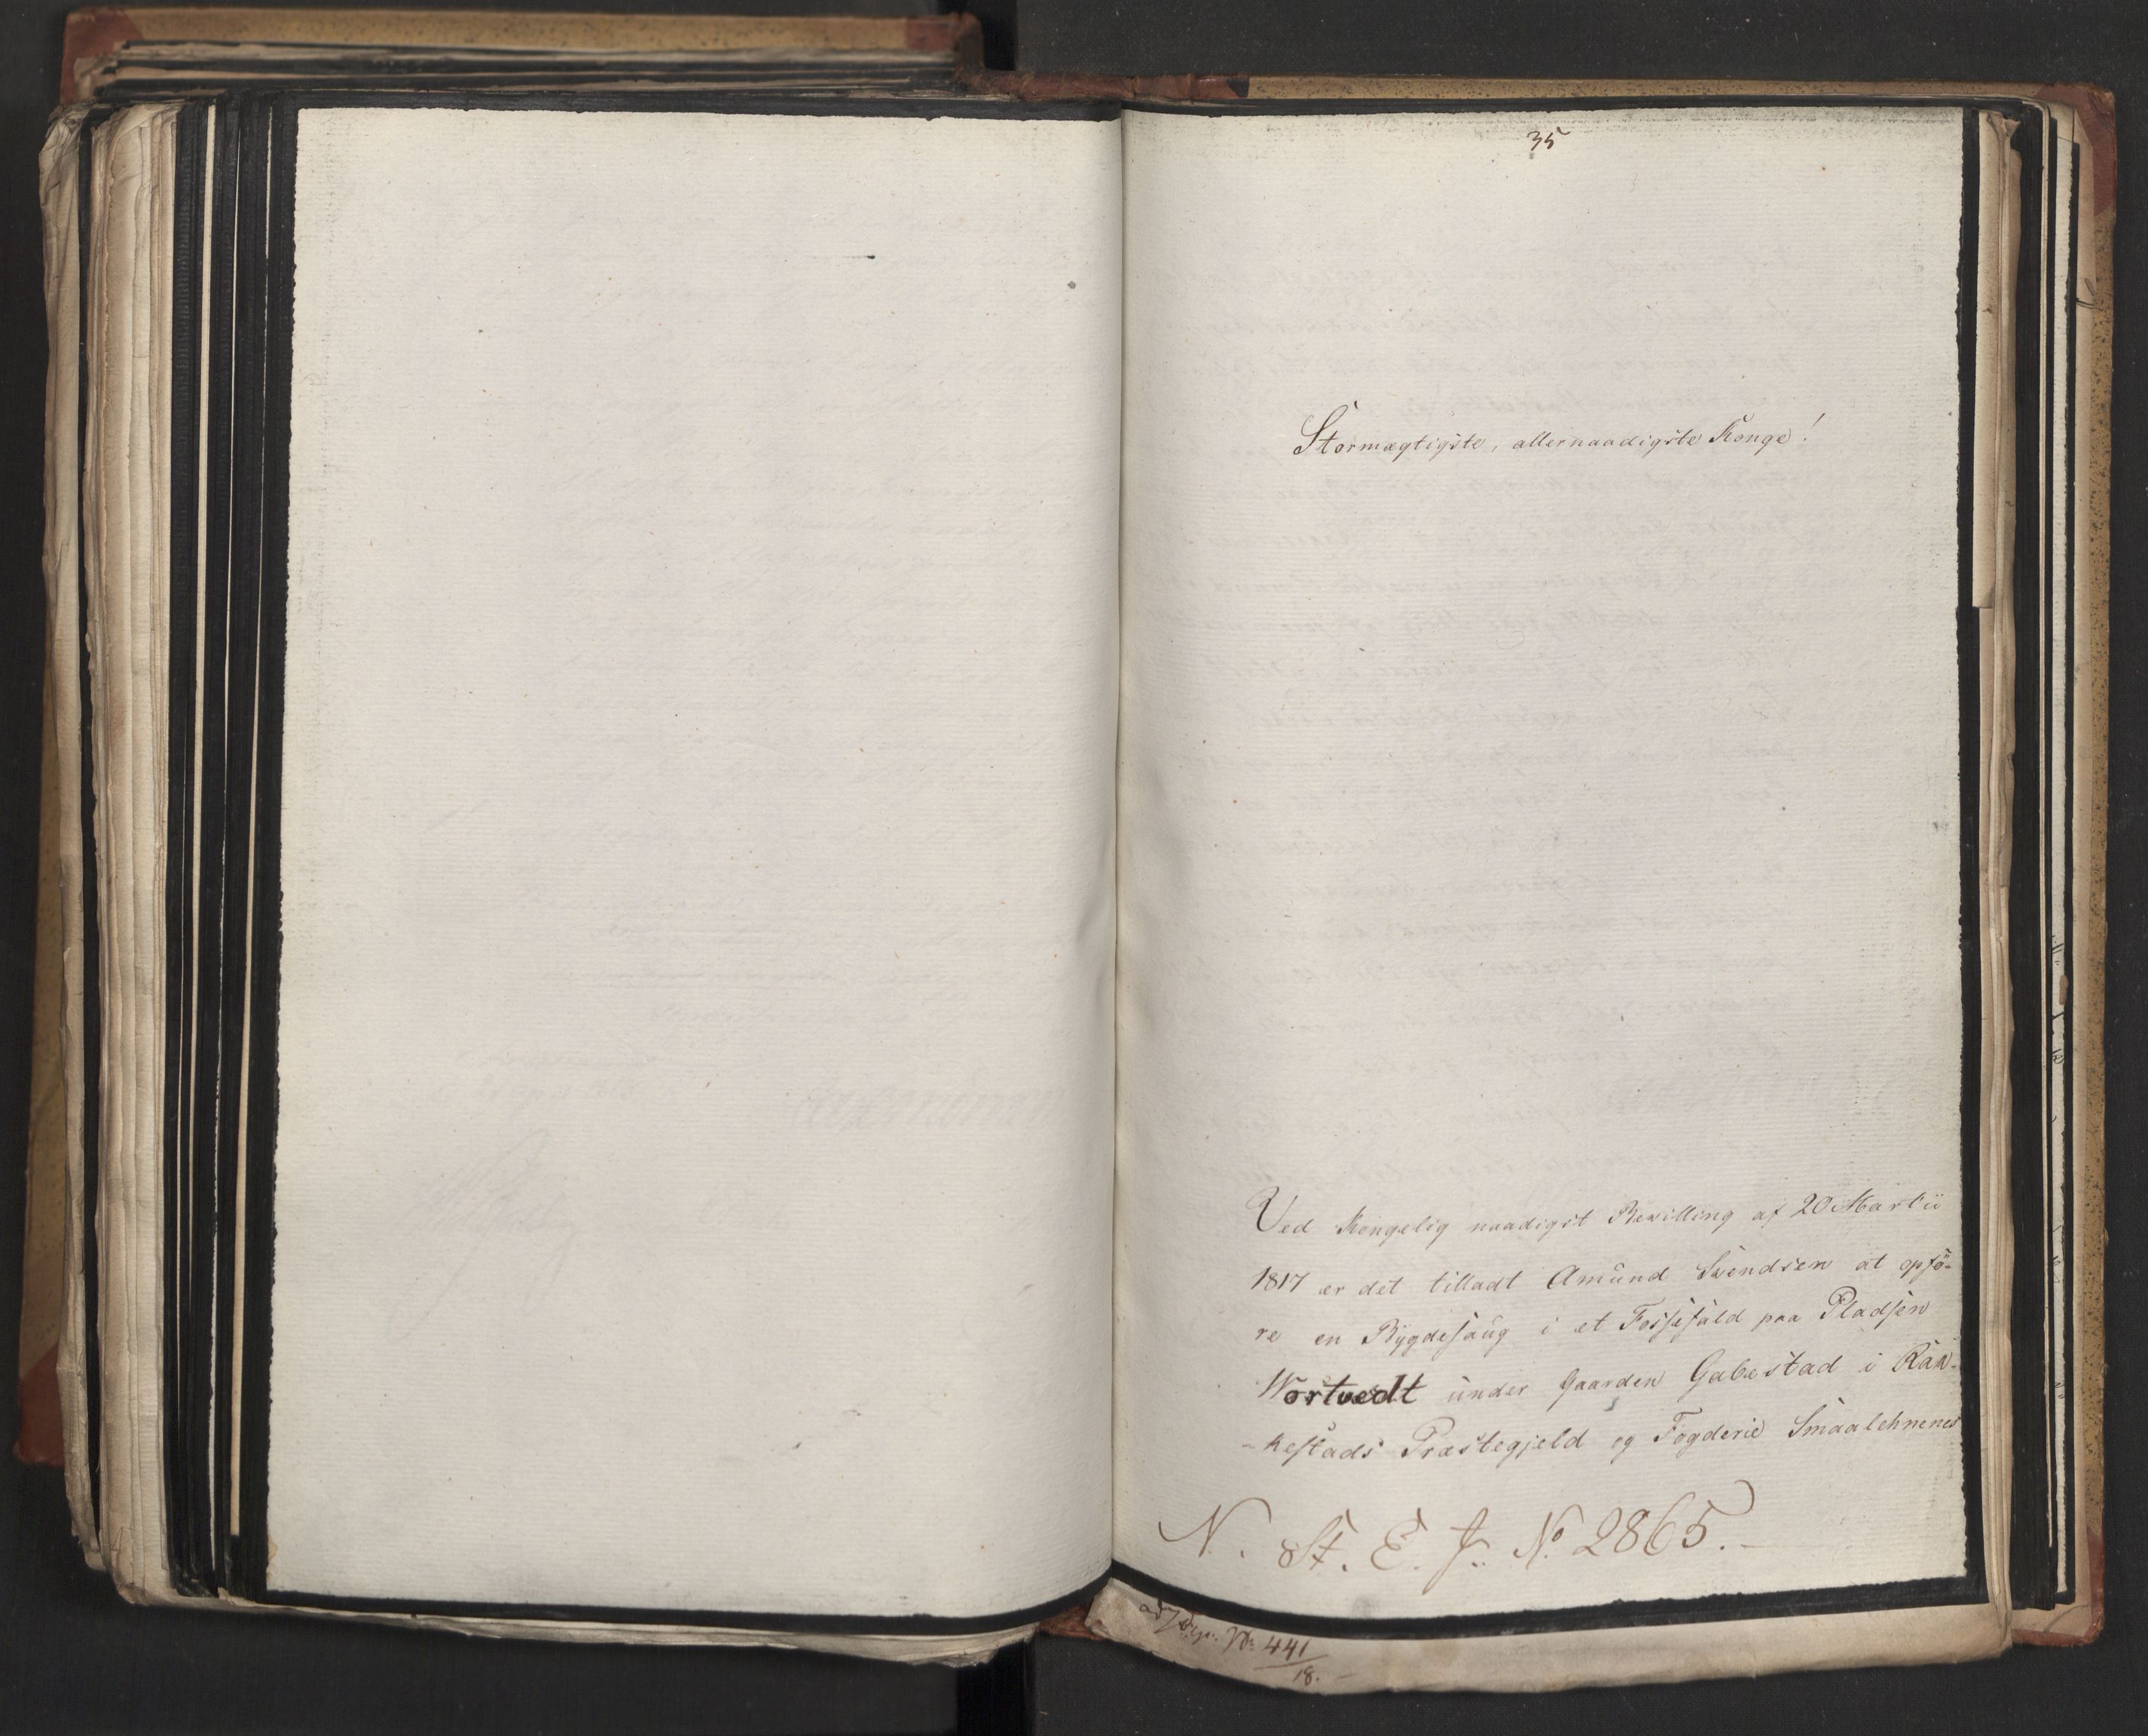 35
Stormægtigste, allernaadigste Konge!
Ved Kongelig naadigst Bevilling af 20 Martii
1817 er det tilladt Amund Svendsen at opfö-
re en Bygdesaug i et Fossefald paa Pladsen
Wortvedt under Gaarden Gabestad i Rak-
-kestads Præstegjeld og Fogderie Smaalehnenes
N. St. E. J. No 2865.
No 441
18.